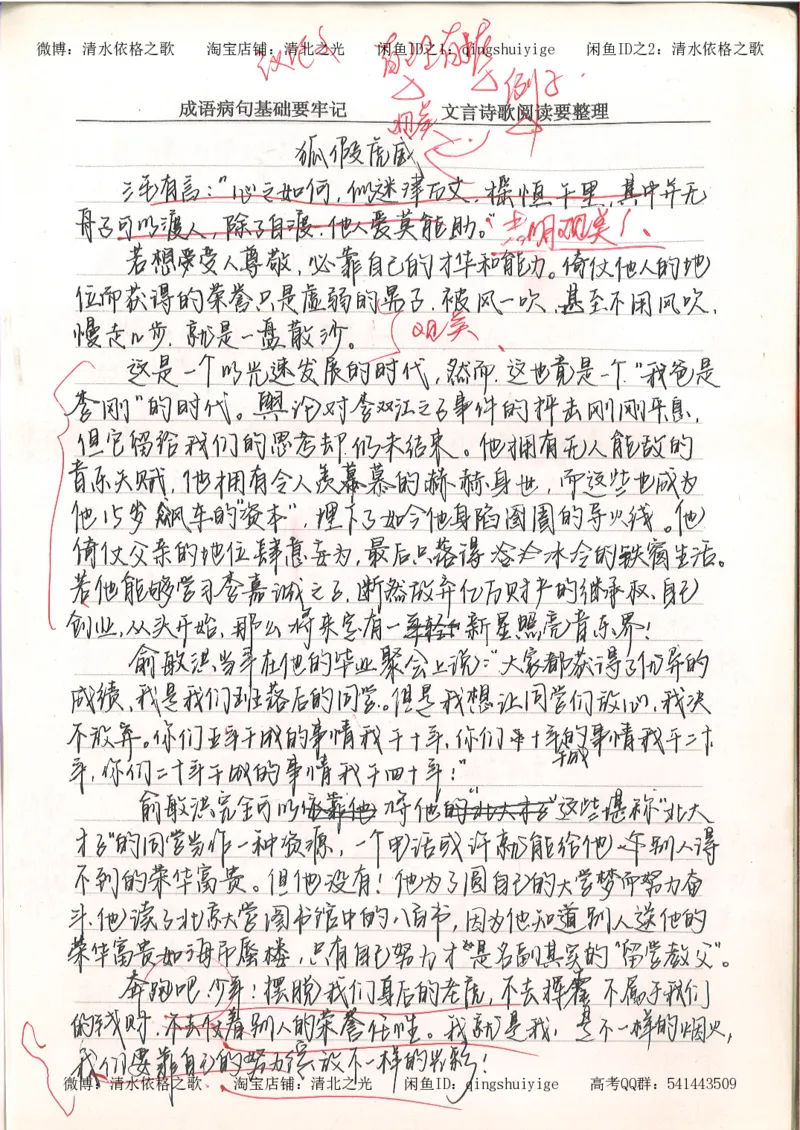 微博：清水依格之歌 淘宝店铺：清北之光 闲鱼ID之1：qingshuiyige 闲鱼ID之2：清水依格之歌
议论文 有理有据
例子
成语病句基础要牢记 文言诗歌阅读要整理
观点
狐假虎威
三毛有言：“心之如何，似迷津万丈，横恒千里，其中并无
舟子可以渡人，除了自渡，他人爱莫能助。” 表明观点！
若想要受人尊敬，必靠自己的才华和能力。倚仗他人的地
位而获得的荣誉只是虚弱的影子，被风一吹，甚至不用风吹，
慢走几步，就是一盘散沙。 观点
这是一个以光速发展的时代，然而，这也竟是一个“我爸是
李刚”的时代。舆论对李双江之子事件的抨击刚刚平息，
但它留给我们的思考却仍未结束。他拥有无人能敌的
音乐天赋，他拥有令人羡慕的赫赫身世，而这些也成为
他15岁飙车的“资本”，埋下了如今他身陷囹圄的导火线。他
倚仗父亲的地位肆意妄为，最后只落得冰冷的铁窗生活。
若他能够学习李嘉诚之子，断然放弃亿万财产的继承权，自己
创业，从头开始，那么将来定有一新星照亮音乐界！
俞敏洪当年在他的毕业聚会上说：“大家都获得了优异的
成绩，我是我们班落后的同学。但是我想让同学们放心，我决
不放弃。你们五年干成的事情我干十年，你们十年干成的事情我干二十
年，你们二十年干成的事情我干四十年！”
俞敏洪完全可以将他的这些堪称“北大
才子”的同学当作一种资源，一个电话或许就能给他一个别人得
不到的荣华富贵。但他没有！他为了圆自己的大学梦而努力奋
斗，他读了北京大学图书馆中的八百书，因为他知道别人送他的
荣华富贵如海市蜃楼，只有自己努力才是名副其实的“留学教父”。
奔跑吧，少年！摆脱我们身后的老虎，不去挥霍不属于我们
的钱财，不去仗着别人的荣誉任性。我就是我，是不一样的烟火，
我们要靠自己的努力绽放不一样的光彩！
微博：清水依格之歌 淘宝店铺：清北之光 闲鱼ID：qingshuiyige 高考QQ群：541443509